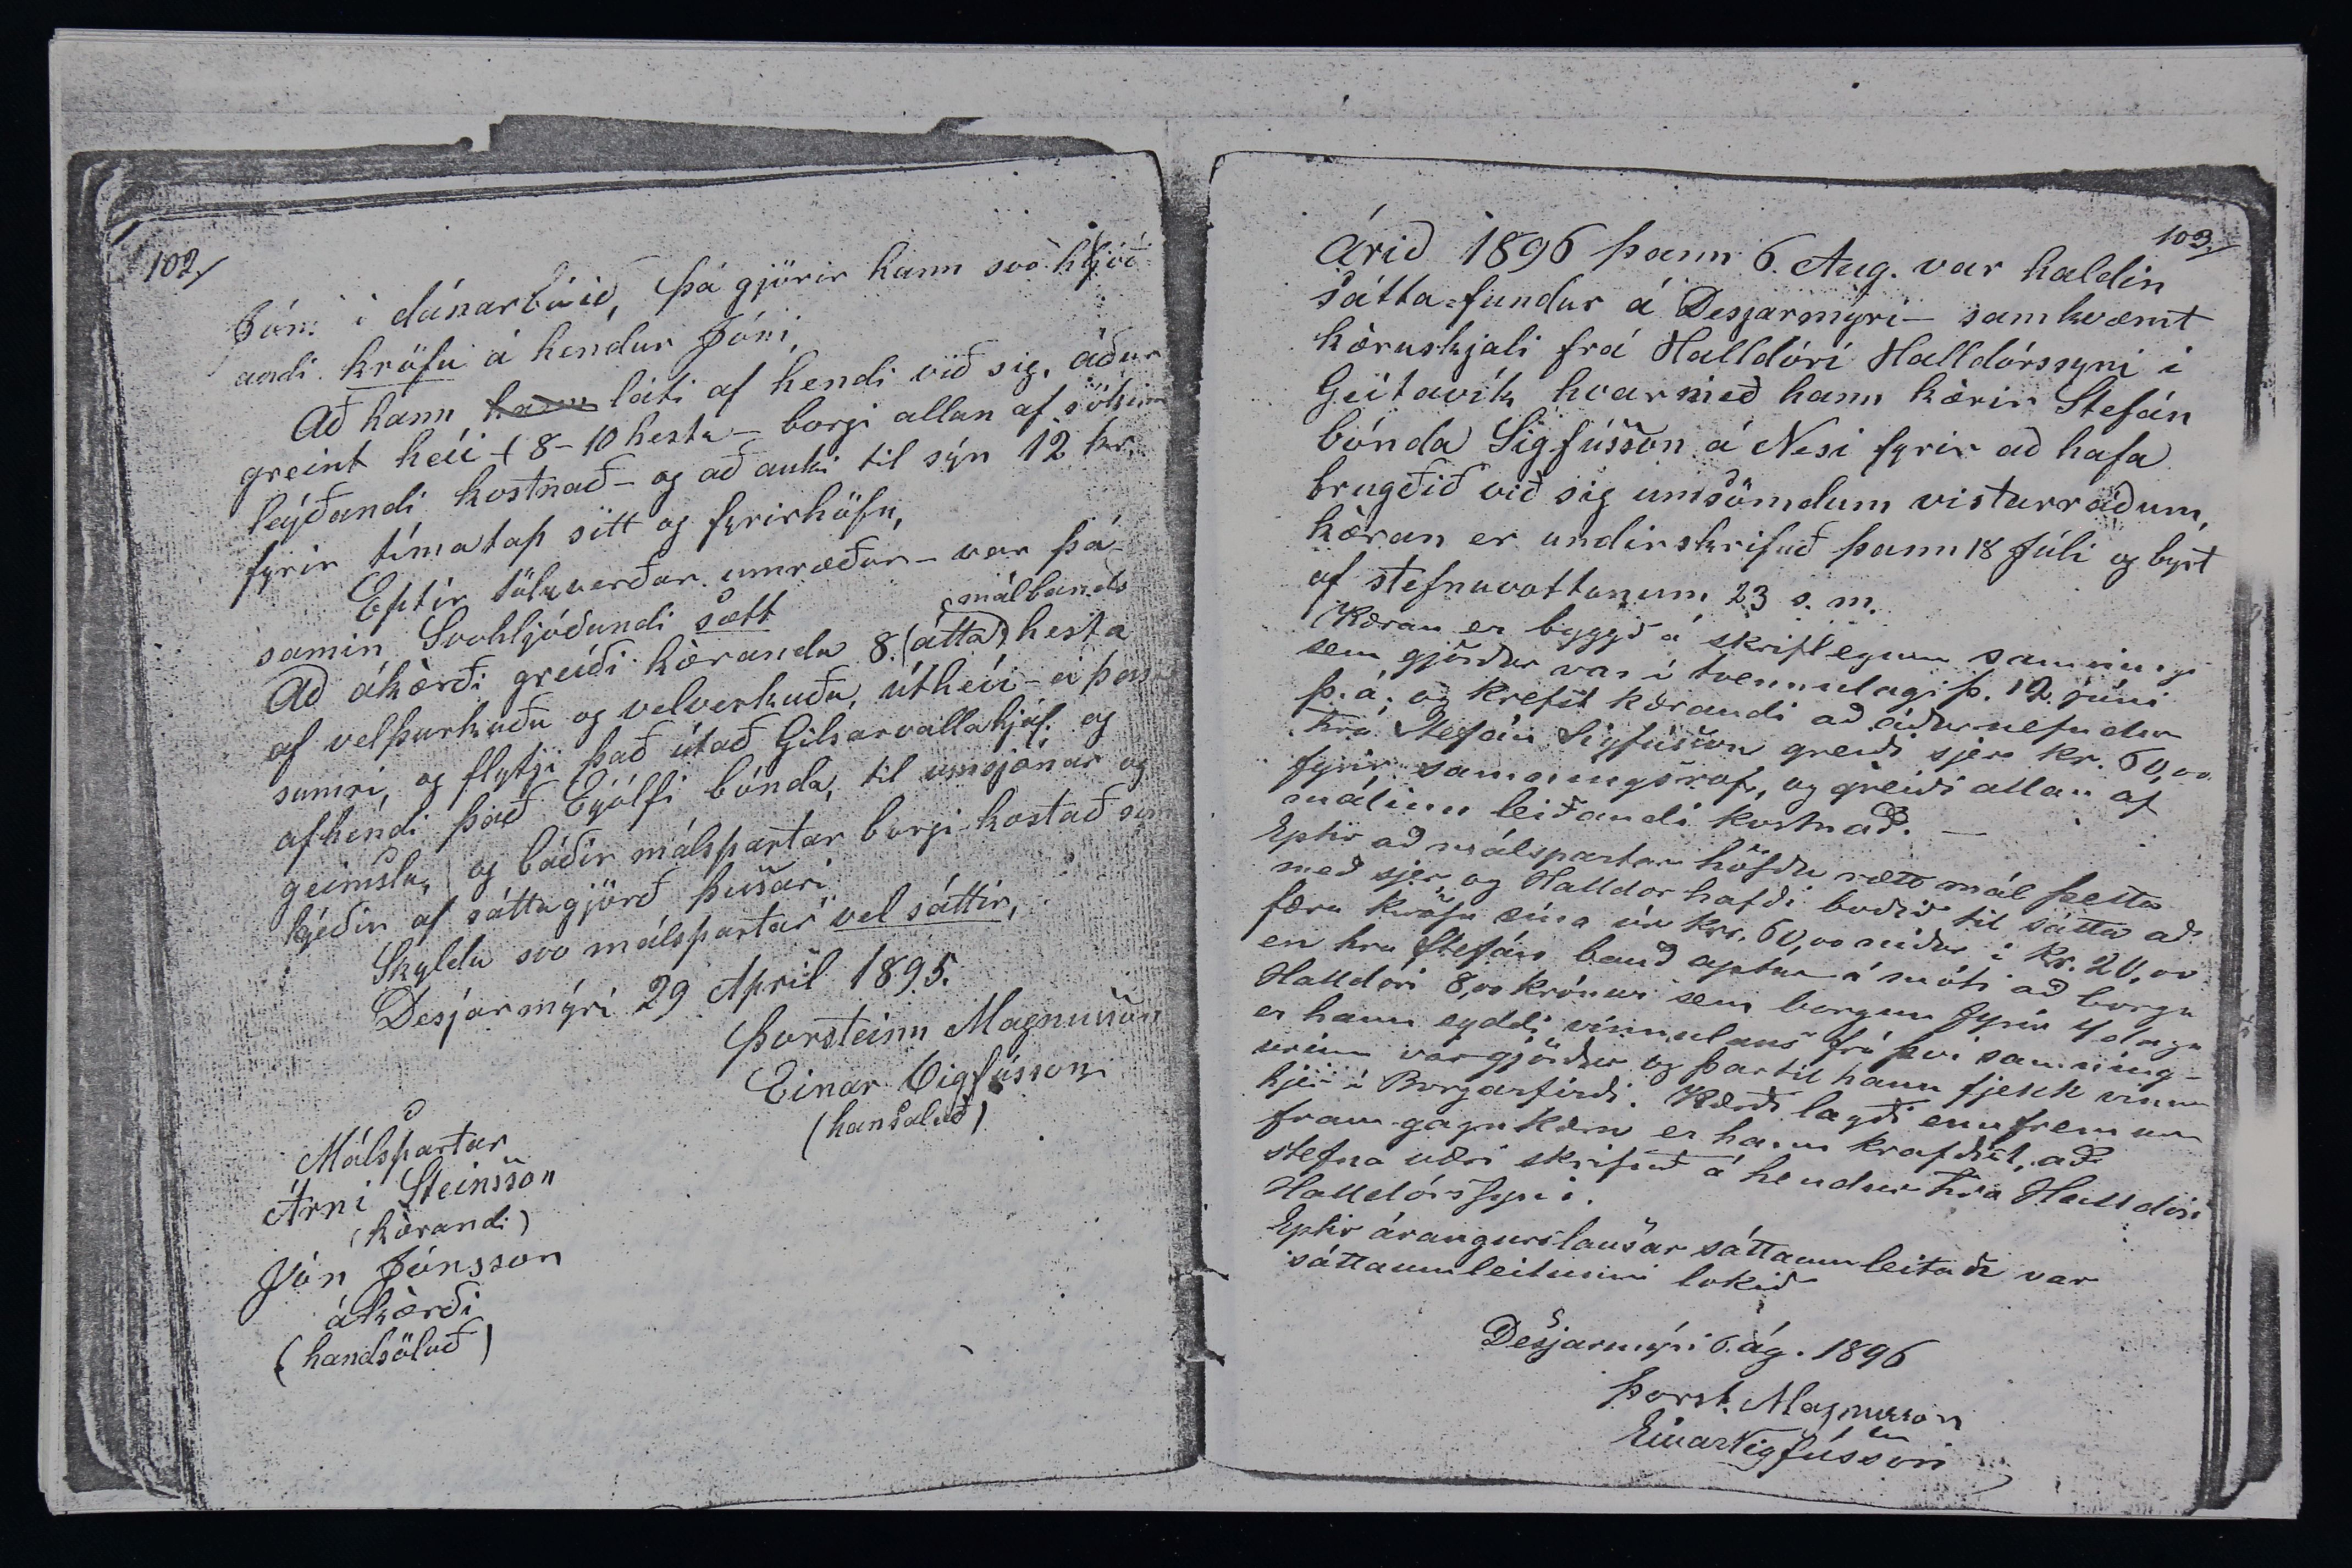 102/
Jóni í dánarbúið, þá gjörir hann svo hljóð-
andi kröfu á hendur Jóni,
Að hann láti af hendi við sig, áður
greint heíi - 8-10 hesta - borgi allan af sökinni
leýðandi kostnað - og að auki til sýn 12 kr.
fyrir tímatap sitt og fyrirhöfn,
Eptir töluverðar umræður - var þá
samin Svohljóðandi sætt
málbands
Að ákærði greiði kæranda 8 (átta) hesta
af velþurkuðu og velverkuðu, útheíi - á þessu
sumri, og flytji það útað Gilsárvallahjál. og
afhendi það Eyólfi bónda, til umsjónar og
geimslu, og báðir málspartar borgi kostað sem
leýðir af sáttagjörð þessari
Skyldu svo málspartar vel sáttir,
Desjarmýri 29 Apríl 1895.
Þorsteinn Magnusson
Einar Vigfússon
(hansalað)
Málspartar
Árni Steinsson
(kærandi)
Jón Jónsson
ákærði
(handsölað)
103/
Árið 1896 þann 6. Aug. var haldin
sátta-fundur á Desjarmýri - samkvæmt
kæruskjali frá Halldóri Halldórssyni í
Geitavík hvarmeð hann kærir Stefán
bónda Sigfússon á Nesi fyrir að hafa
brugðið við sig umsömdum vistarráðum,
kæran er undirskrifuð þann 18 Júlí og byrt
af stefnuvottunum 23 s. m.
Kæran er byggð á skriflegum samningi
sem gjörður var í tvennulagi þ. 12. júní
þ. á. og krefst kærandi að áðurnefndur
hra Stefán Sigfússon greiði sjer kr. 60,00
fyrir samningsrof, og greiði allan af
málinu leiðandi kostnað. -
Eptir að málspartar höfðu rætt mál þetta
með sjer og Halldór hafði boðið til sátta að
færa kröfu sína úr kr. 60,00 niður í kr. 20,00
en hra Stefán bauð aptur á móti að borga
Halldóri 8,00 krónur sem borgun fyrir 4 daga
er hann eyddi vinnulaus frá því samning-
urinn var gjörður og þartil hann fjekk vinnu
hjer í Borgarfirði. Kærði lagði ennfremur
fram gagnkæru er hann krafðist, að
stefna væri skrifuð á hendur hra Halldóri
Halldórssyni.
Eptir árangurslausar sáttaumleitanir var
sáttaumleituninni lokið
Desjarmýri 6. ág. 1896
Þorst. Magnusson
Einar Vigfússon